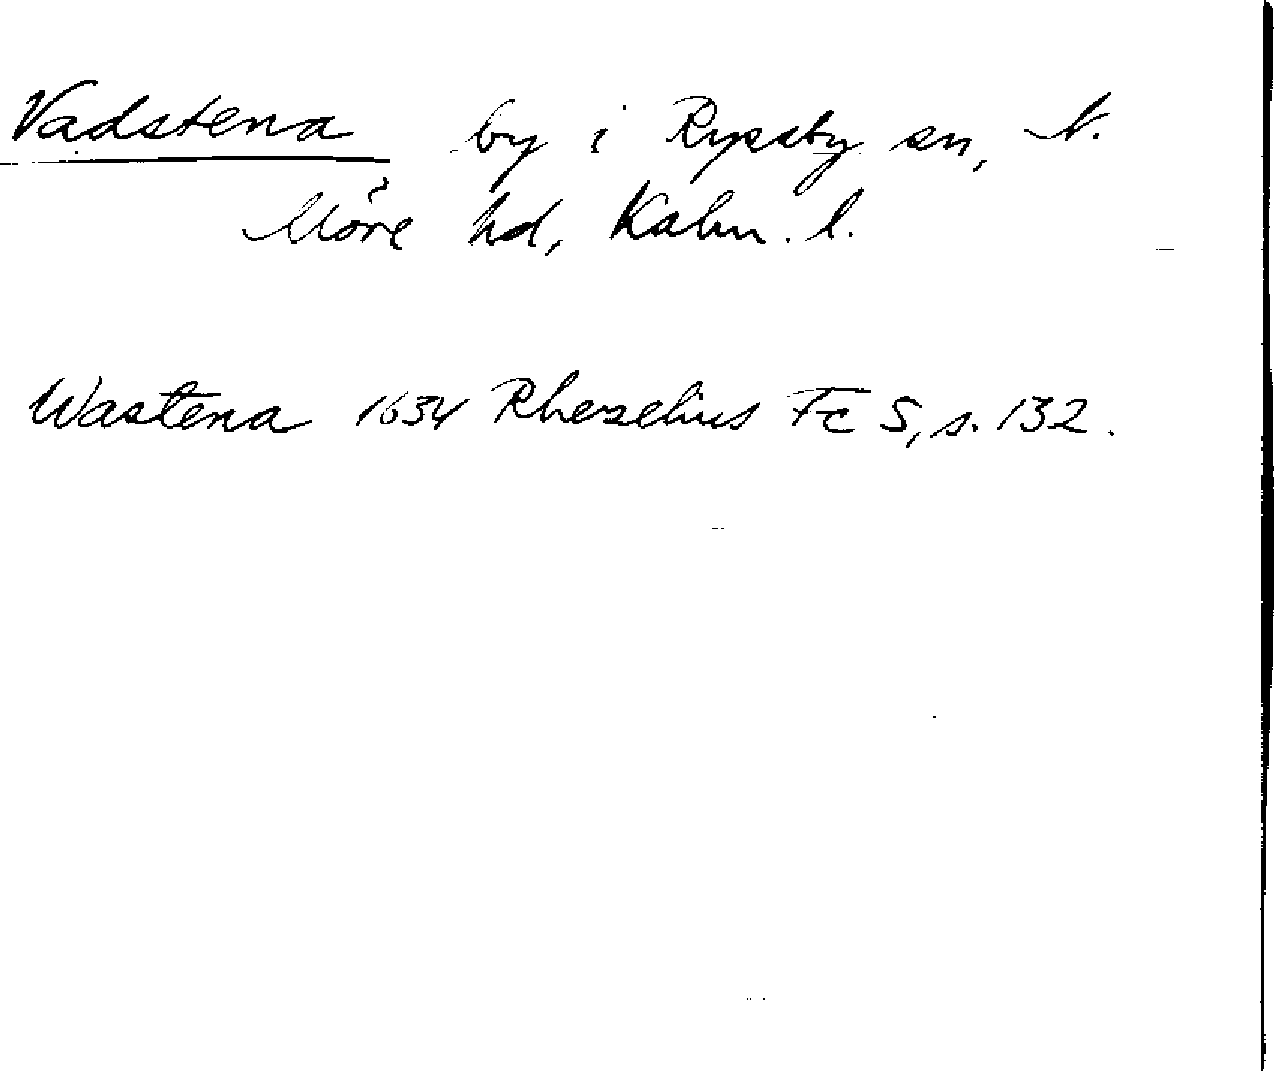 Vadstena by i Ryssby sn, N.
Möre hd, Kalm. l.
Wastena 1634 Rhezelius Fc 5, s. 132.